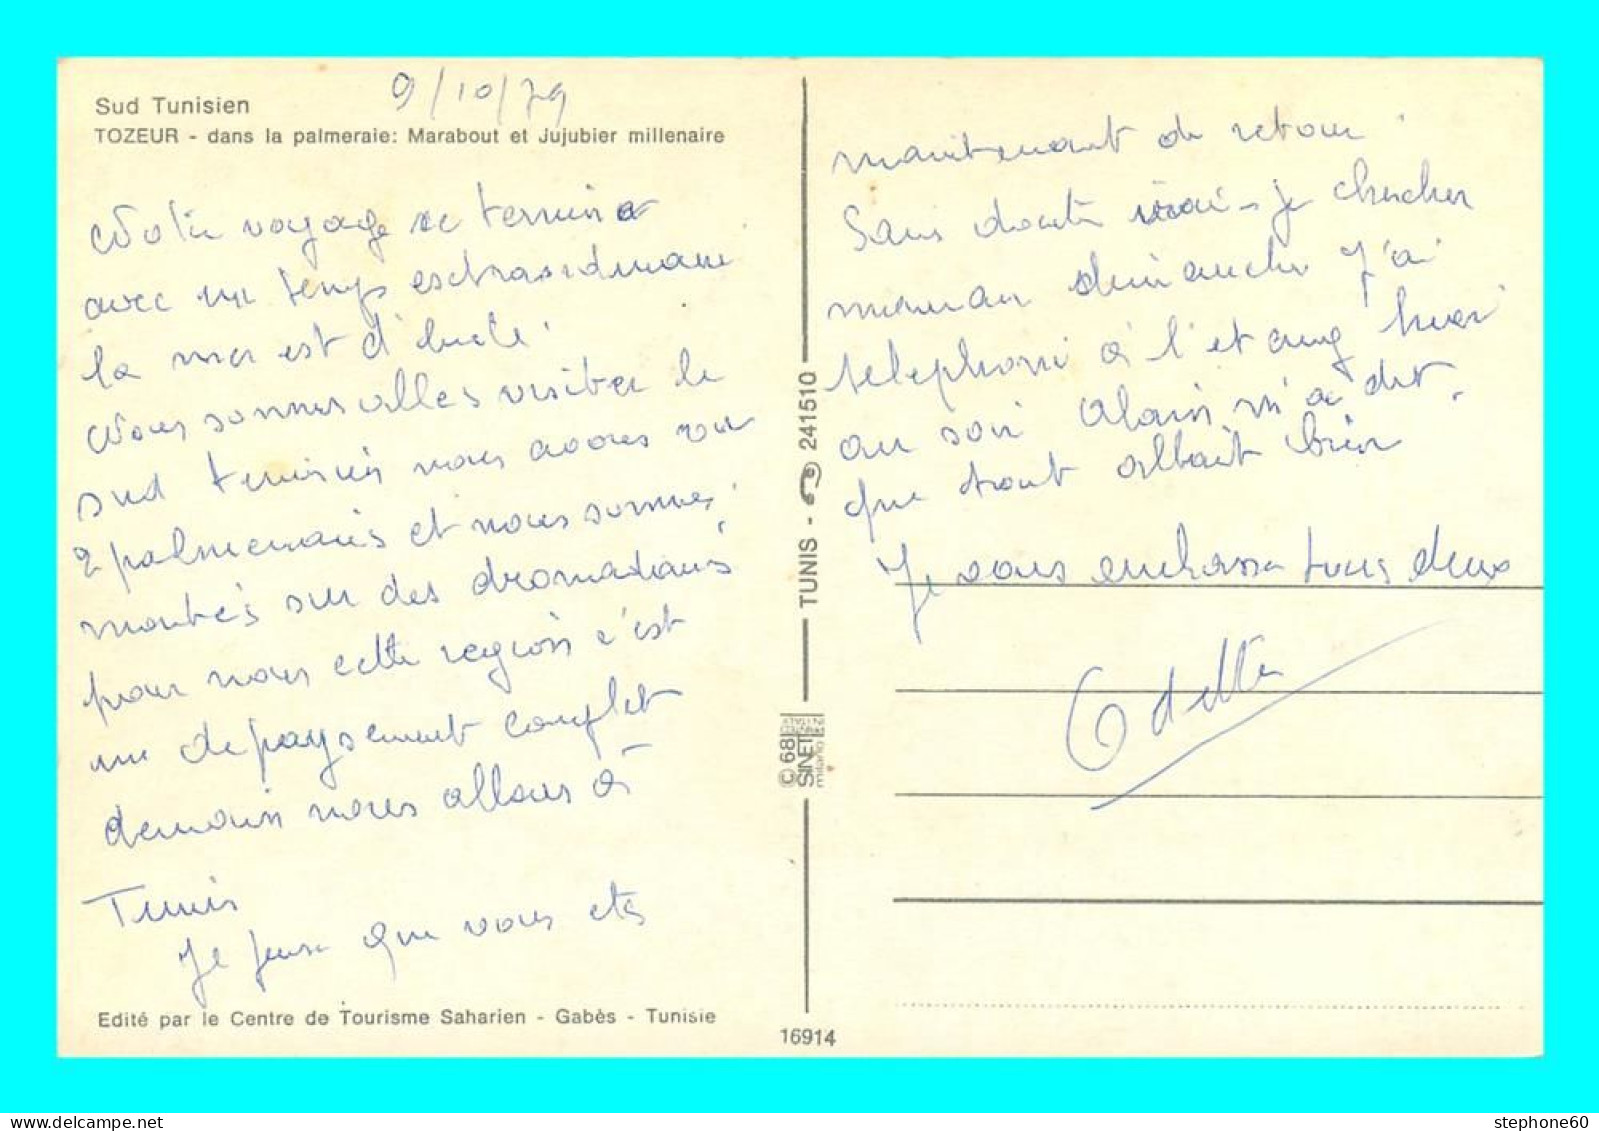 9/10/79
Sud Tunisien
TOZEUR - dans la palmeraie: Marabout et Jujubier millenaire
Notre voyage se termine
avec un temps extraordinaire
la mer est d'huile.
Nous sommes allées visiter le
sud tunisien nous avons vu
2 palmeraies et nous sommes
montées sur des dromadaires
pour nous cette région c'est
un depaysement complet
demain nous allons à
Tunis
Je pense que vous etes
Edité par le Centre de Tourisme Saharien - Gabès - Tunisie
TUNIS - 241510
© 68 SINET
milano
PRINTED
IN ITALY
16914
maintenant de retour.
Sans doute irai-je chercher
maman dimanche J'ai
telephoné à l'etang hier
au soir Alain m'a dit
que tout allait bien
Je vous embrasse tous deux
Odette
stephone60